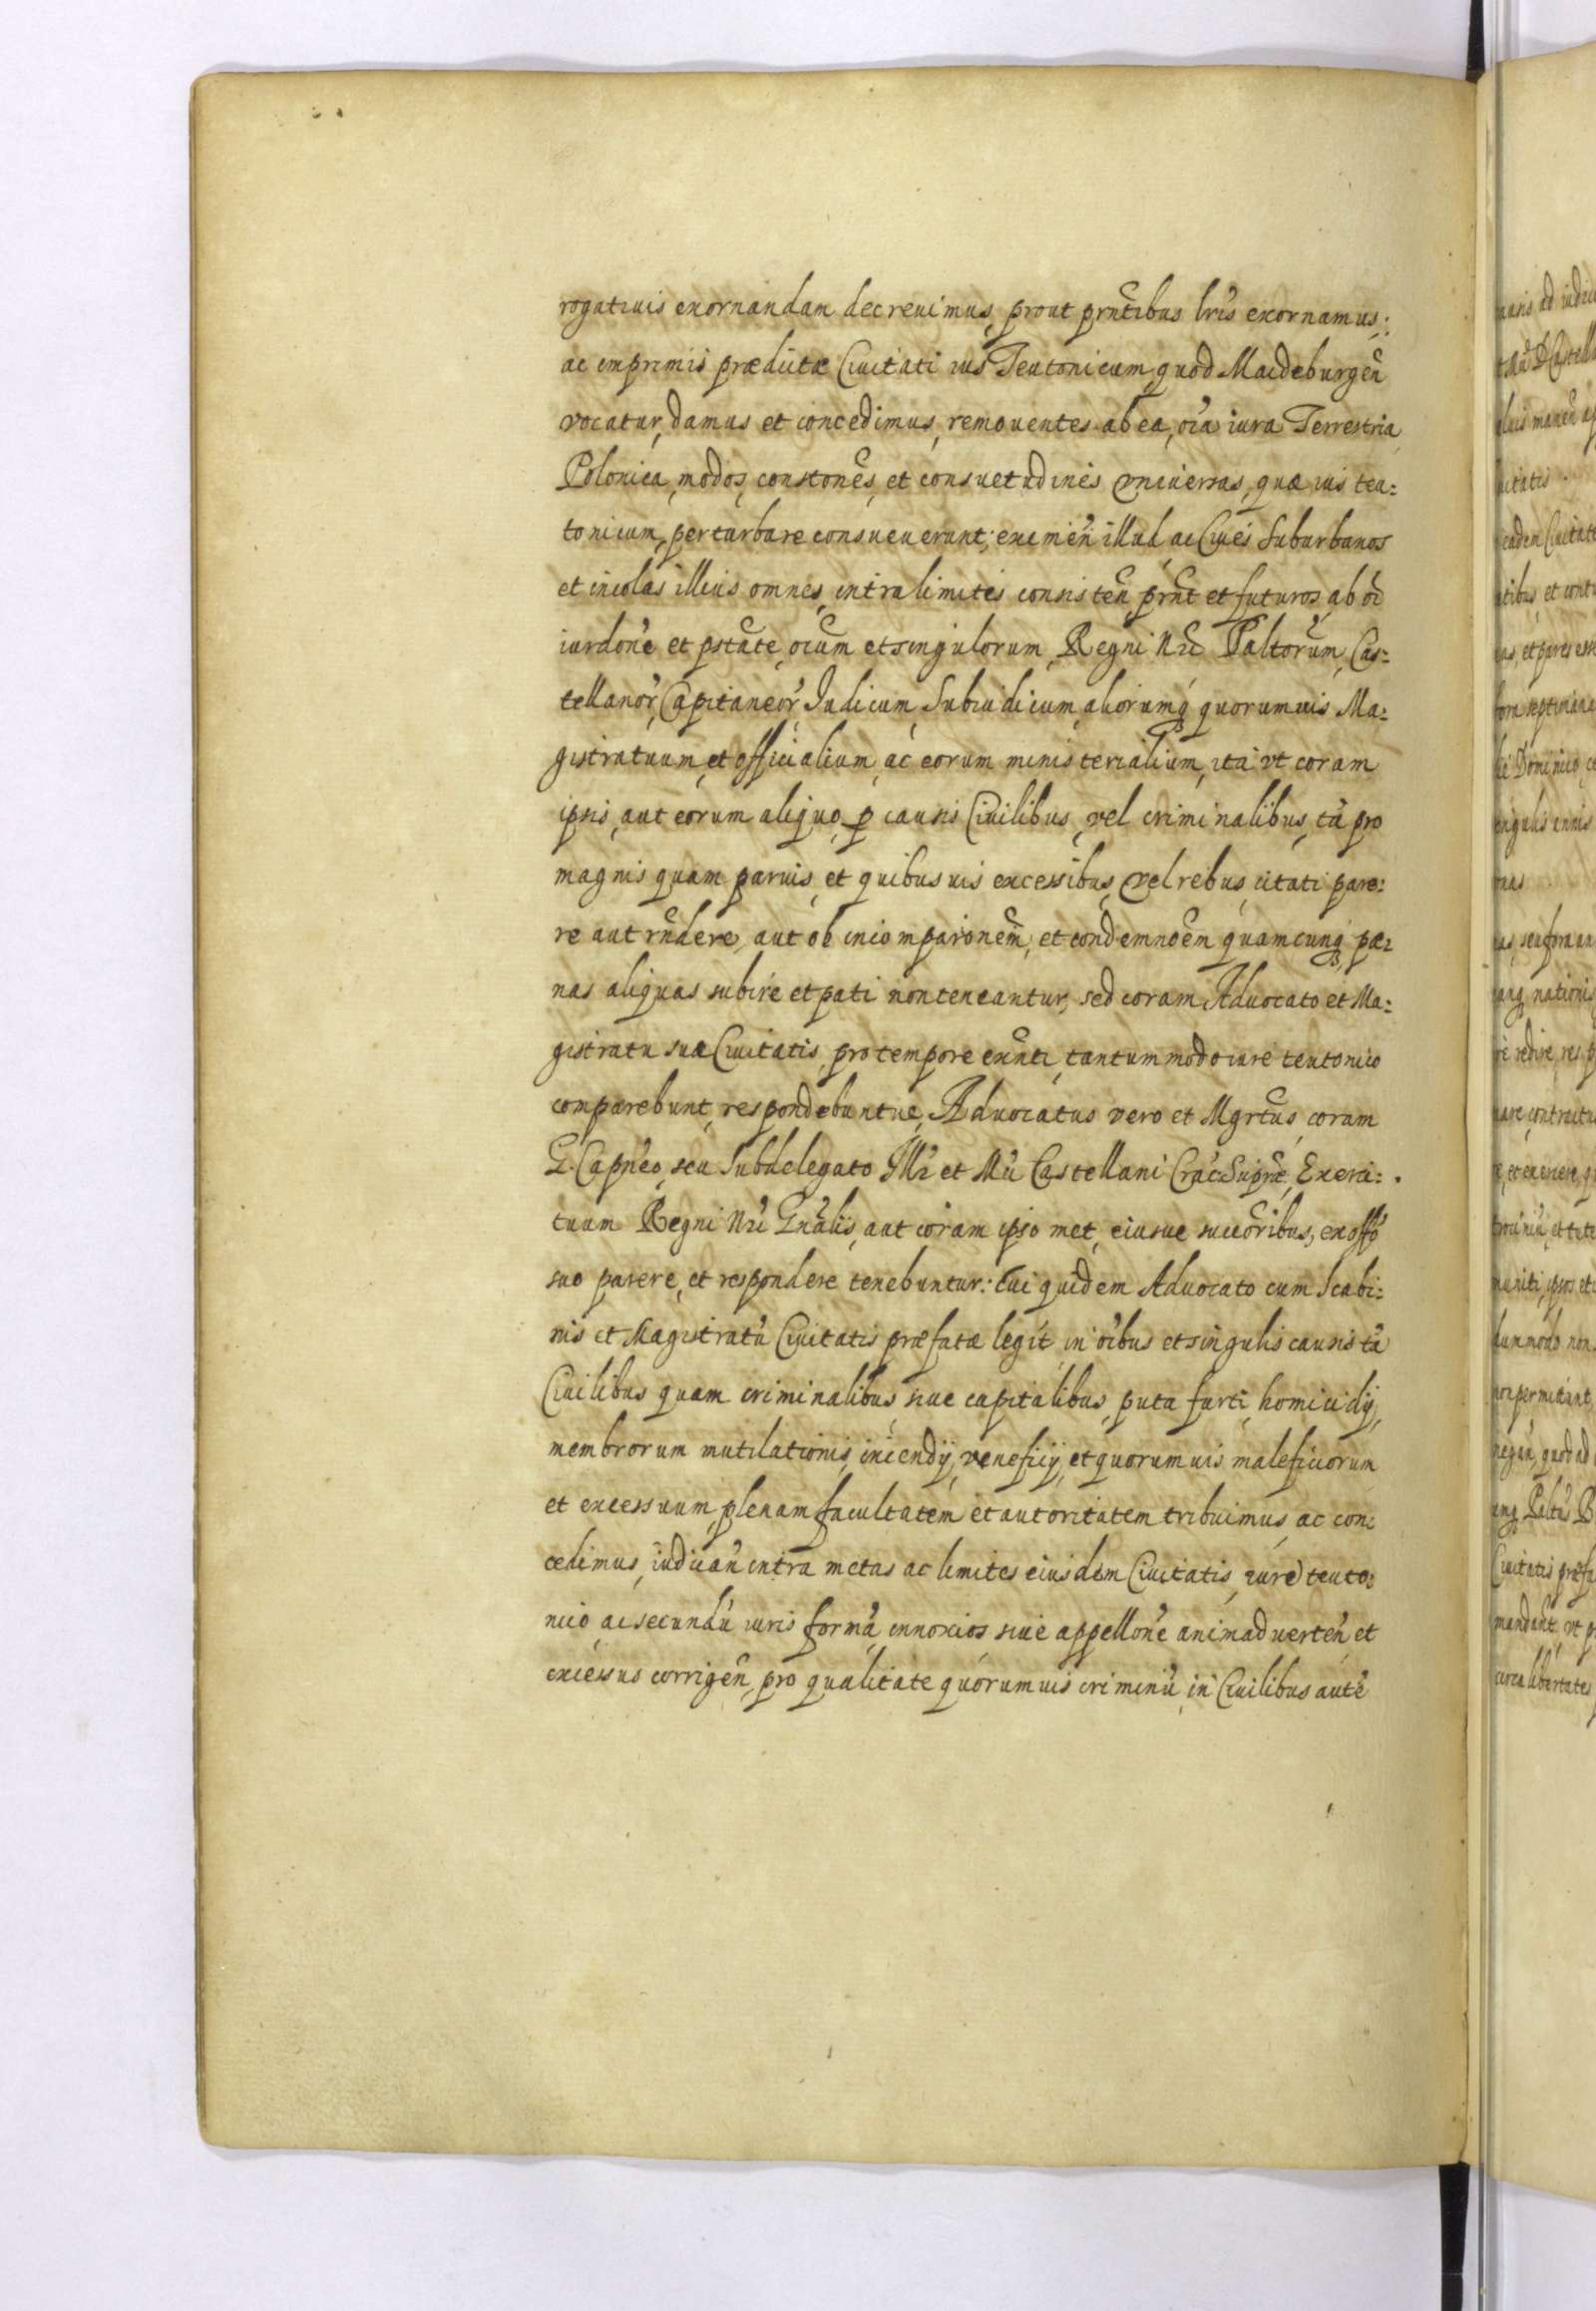 rogatiuis exornandam decreuimus, prout prñtibus lris exornamus:
ac imprimis prædictæ Ciuitati ius Teutonicum, quod Maideburgeñ
vocatur, damus et concedimus, remouentes ab ea, oia iura Terrestria
Polonica, modos, constones, et consuetudines vniuersas, quæ ius teu=
tonicum, perturbare consueuerunt; eximeñ illud, ac Ciues suburbanos
et incolas illius omnes, intra limites consisteñ, prñt et futuros, ab oi
iurdone et ptate, oium et singulorum, Regni Nri Paltorum, Cas=
tellanor, Capitaneor, Iudicum, Subiudicum, aliorumq quorumuis Ma=
gistratuum, et officialium, ac eorum ministerialium, ita vt coram
ipsis, aut eorum aliquo, p causis Ciuilibus, vel criminalibus, tã pro
magnis quam paruis, et quibusuis excessibus, vel rebus, citati pare=
re aut rñdere, aut ob incomparonem, et condemnoem quamcunq, pæ=
nas aliquas subire et pati non teneantur, sed coram Aduocato et Ma=
gistratu suæ Ciuitatis, pro tempore exñti, tantummodo iure teutonico
comparebunt, respondebuntue, Aduocatus vero et Mgrtus, coram
G. Capneo, seu Subdelegato Illr et Mci Castellani Crac. Supre, Exerci=
tuum Regni Nri Gnalis, aut coram ipso met, eiusue succoribus, ex offo
suo parere, et respondere tenebuntur: Cui quidem Aduocato cum Scabi=
nis et Magistratu Ciuitatis præfatæ legit, in oibus et singulis causis tã
Ciuilibus quam criminalibus, siue capitalibus, puta furti, homicidij,
membrorum mutilationis, incendij, veneficij, et quorumuis maleficiorum
et excessuum, plenam facultatem et autoritatem tribuimus, ac con=
cedimus, iudicañ intra metas ac limites eiusdem Ciuitatis, iure teuto=
nico, ac secundũ iuris formã, innoxios siue appellone animaduerteñ, et
excessus corrigeñ, pro qualitate quorumuis criminũ, in Ciuilibus autẽ